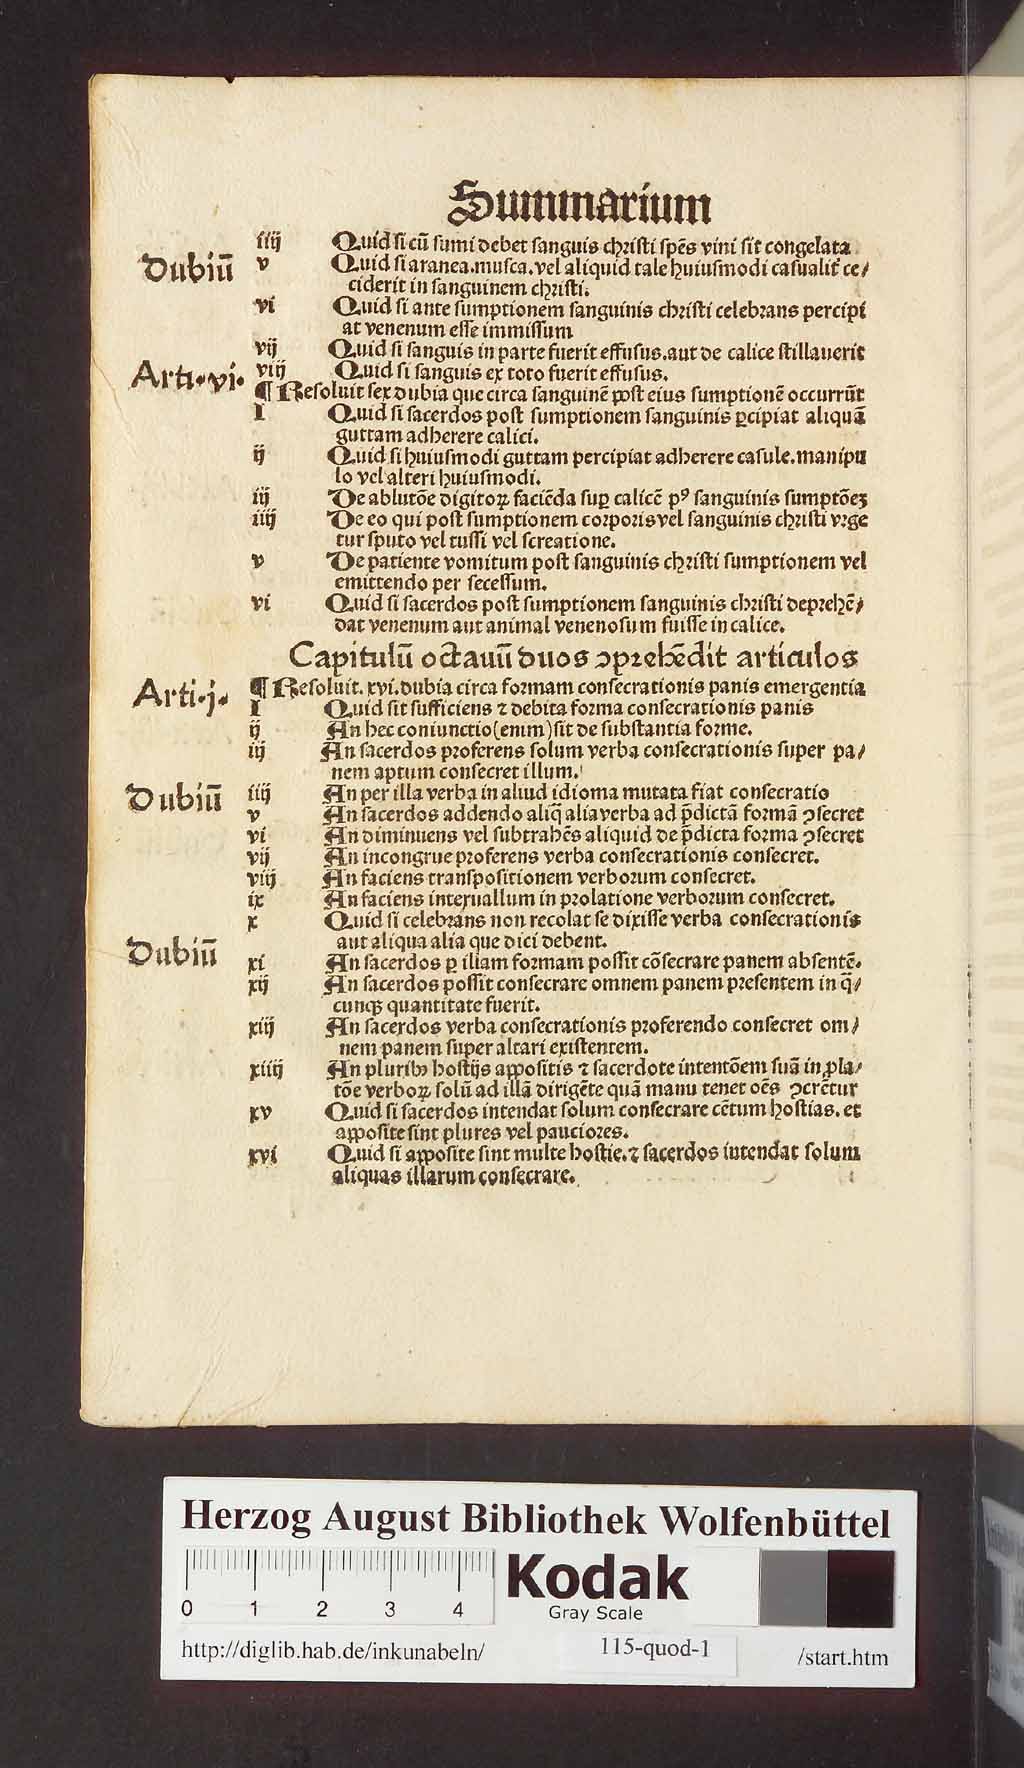 Summarium
iiij Quid si cū sumi debet sanguis christi spēs vini sit congelata
Dubiū
v Quid si aranea.musca.vel aliquid tale huiusmodi casualiť ce/
ciderit in sanguinem christi.
vi Quid si ante sumptionem sanguinis christi celebrans percipi
at venenum esse immissum
vij Quid si sanguis in parte fuerit effusus.aut de calice stillauerit
viij Quid si sanguis ex toto fuerit effusus.
Arti.vi.
¶ Resoluit sex dubia que circa sanguinē post eius sumptionē occurrūt
I Quid si sacerdos post sumptionem sanguinis ꝑcipiat aliquā
guttam adherere calici.
ij Quid si huiusmodi guttam percipiat adherere casule.manipu
lo vel alteri huiusmodi.
iij De ablutōe digitoꝝ faciēda suꝑ calicē pꝰ sanguinis sumptōeꝫ
iiij De eo qui post sumptionem corporis vel sanguinis christi vrge
tur sputo vel tussi vel screatione.
v De patiente vomitum post sanguinis christi sumptionem vel
emittendo per secessum.
vi Quid si sacerdos post sumptionem sanguinis christi deprehē/
dat venenum aut animal venenosum fuisse in calice.
Capitulū octauū duos ↄprehēdit articulos
Arti.j.
¶ Resoluit.xvi.dubia circa formam consecrationis panis emergentia
I Quid sit sufficiens ⁊ debita forma consecrationis panis
ij An hec coniunctio(enim)sit de substantia forme.
iij An sacerdos proferens solum verba consecrationis super pa/
nem aptum consecret illum.
Dubiū
iiij An per illa verba in aliud idioma mutata fiat consecratio
v An sacerdos addendo aliq̄ alia verba ad p̄dictā formā ↄsecret
vi An diminuens vel subtrahēs aliquid de p̄dicta forma ↄsecret
vij An incongrue proferens verba consecrationis consecret.
viij An faciens transpositionem verborum consecret.
ix An faciens interuallum in prolatione verborum consecret.
x Quid si celebrans non recolat se dixisse verba consecrationis
aut aliqua alia que dici debent.
Dubiū
xi An sacerdos ꝑ illam formam possit cōsecrare panem absentē.
xij An sacerdos possit consecrare omnem panem presentem in q̄/
cunqꝫ quantitate fuerit.
xiij An sacerdos verba consecrationis proferendo consecret om/
nem panem super altari existentem.
xiiij An pluribꝰ hostijs appositis ⁊ sacerdote intentōem suā in ꝓla/
tōe verboꝝ solū ad illā dirigēte quā manu tenet oēs ↄcrētur
xv Quid si sacerdos intendat solum consecrare cētum hostias.et
apposite sint plures vel pauciores.
xvi Quid si apposite sint multe hostie.⁊ sacerdos intendat solum
aliquas illarum consecrare.
Herzog August Bibliothek Wolfenbüttel
0 1 2 3 4
Kodak
Gray Scale
http://diglib.hab.de/inkunabeln/ 115-quod-1 /start.htm